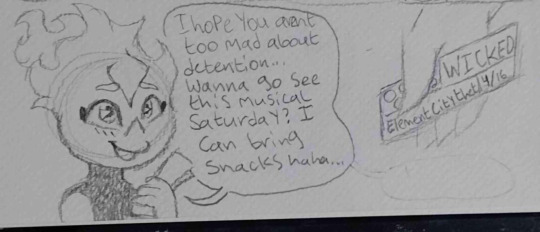 I hope You arent
too mad about
detention...
Wanna go see
this musical
Saturday? I
can bring
snacks haha...
WICKED
Element City 4/16